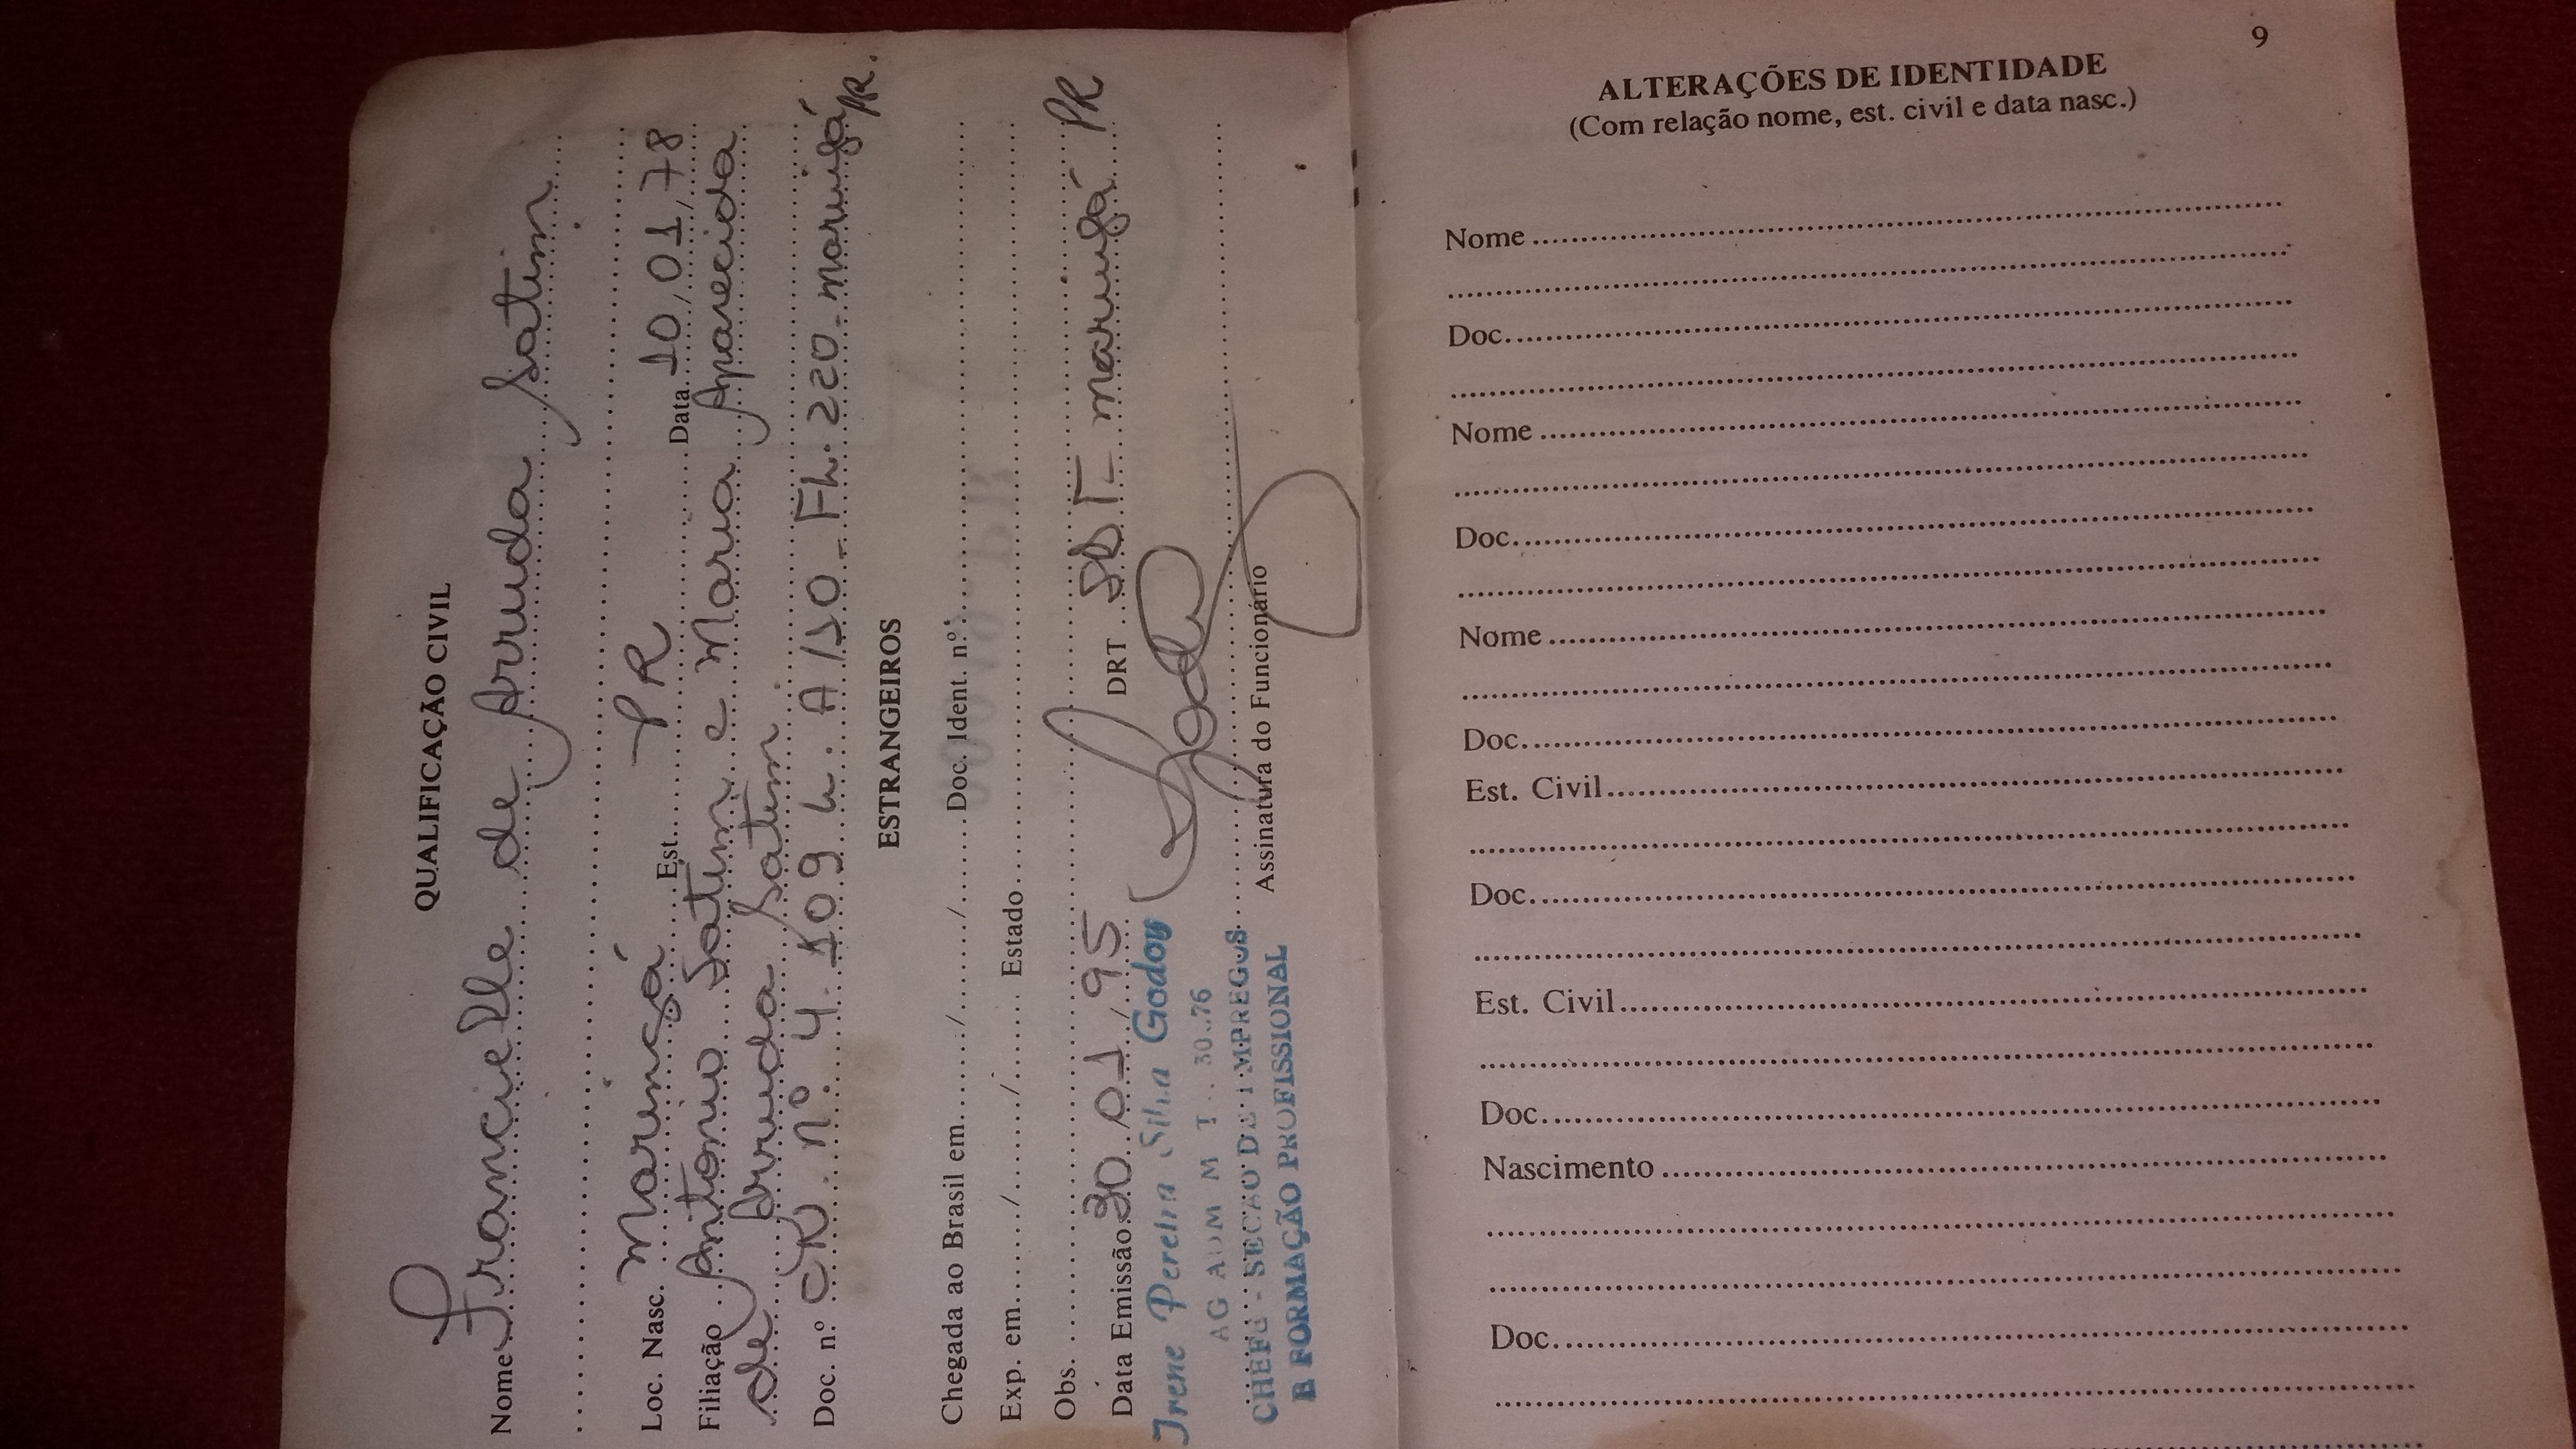 QUALIFICAÇÃO CIVIL
Nome Francielle de Arruda Satim
Loc. Nasc. Maringá Est. PR Data 10/01/78
Filiação Antonio Satim e Maria Aparecida
de Arruda Satim
Doc. n.º CR. nº 4.109 L. A/10 - Fh. 220 - Maringá PR.
ESTRANGEIROS
Chegada ao Brasil em ....../....../...... Doc. Ident. nº
Exp. em ....../....../...... Estado
Obs.
Data Emissão 30/01/95 DRT SDT - Maringá PR
Irene Pereira Silva Godoy
AG ADM M T 30.76
CHEFE - SECAO DE EMPREGOS
E FORMAÇÃO PROFISSIONAL
Assinatura do Funcionário
9
ALTERAÇÕES DE IDENTIDADE
(Com relação nome, est. civil e data nasc.)
Nome
Doc.
Nome
Doc.
Nome
Doc.
Est. Civil
Doc.
Est. Civil
Doc.
Nascimento
Doc.